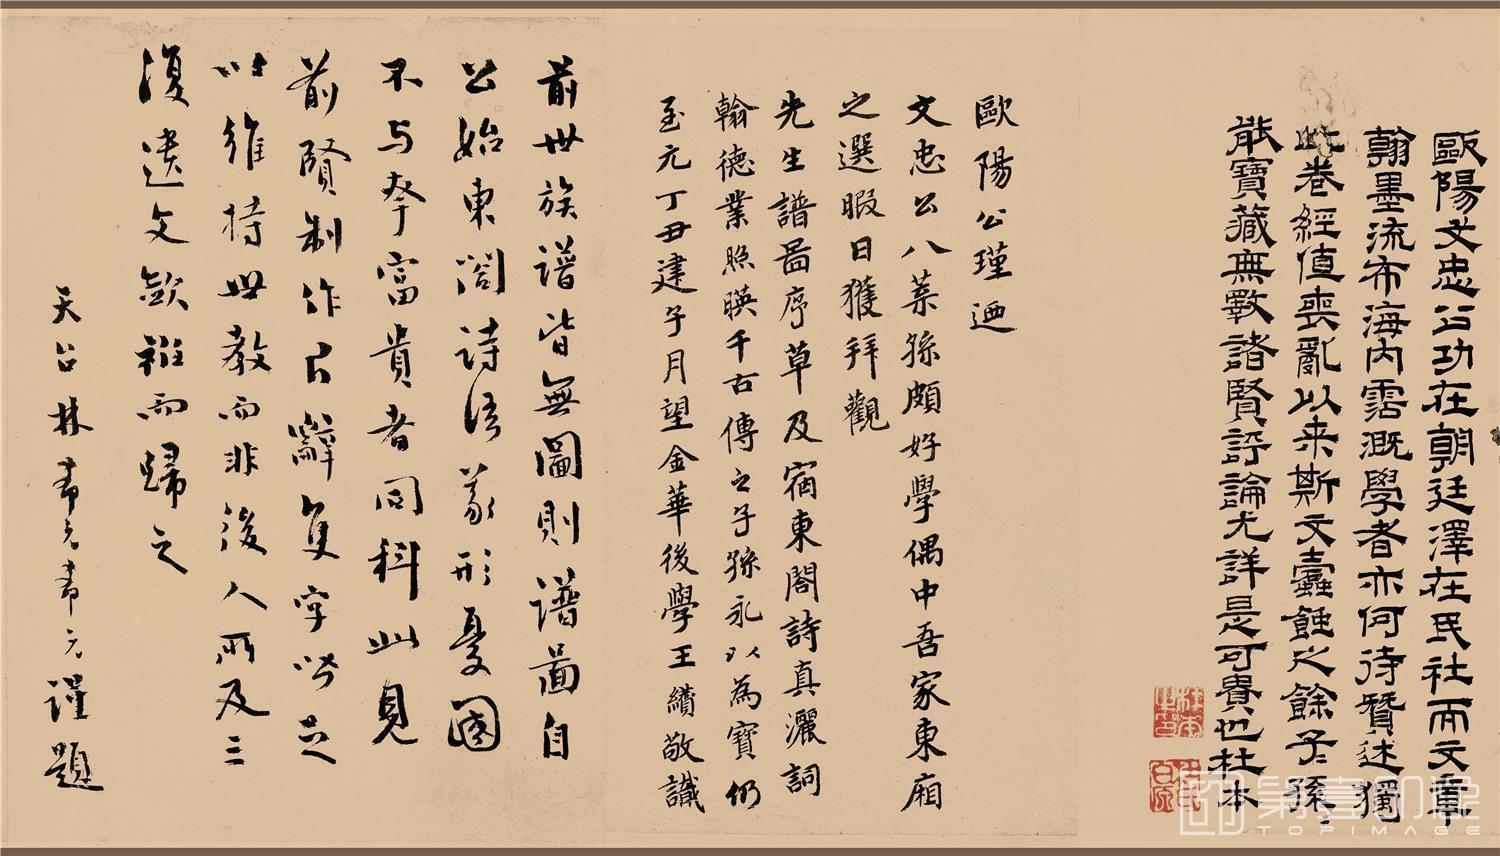 歐陽文忠公功在朝廷澤在民社而文章
翰墨流布海内霑溉學者亦何待贊述獨
此卷經值喪亂以来斯文蠹蝕之餘子孫
能寶藏無斁諸賢評論尤詳是可貴也杜本
歐陽公瑾迺
文忠公八葉孫頗好學偶中吾家東廂
之選暇日獲拜觀
先生譜啚序草及宿東閣詩真灑詞
翰德業照暎千古傳之子孫永以為寶仍
至元丁丑建子月望金華後學王纘敬識
前世族譜皆無圖則譜啚自
公始東閤詩語義形憂國
不与孥富貴者同科此見
前賢制作言辭隻字皆足
以維持世教而非後人所及三
復遺文歛衽而歸之
天台林希元希元謹題
第壹印象
TOPIMAGE